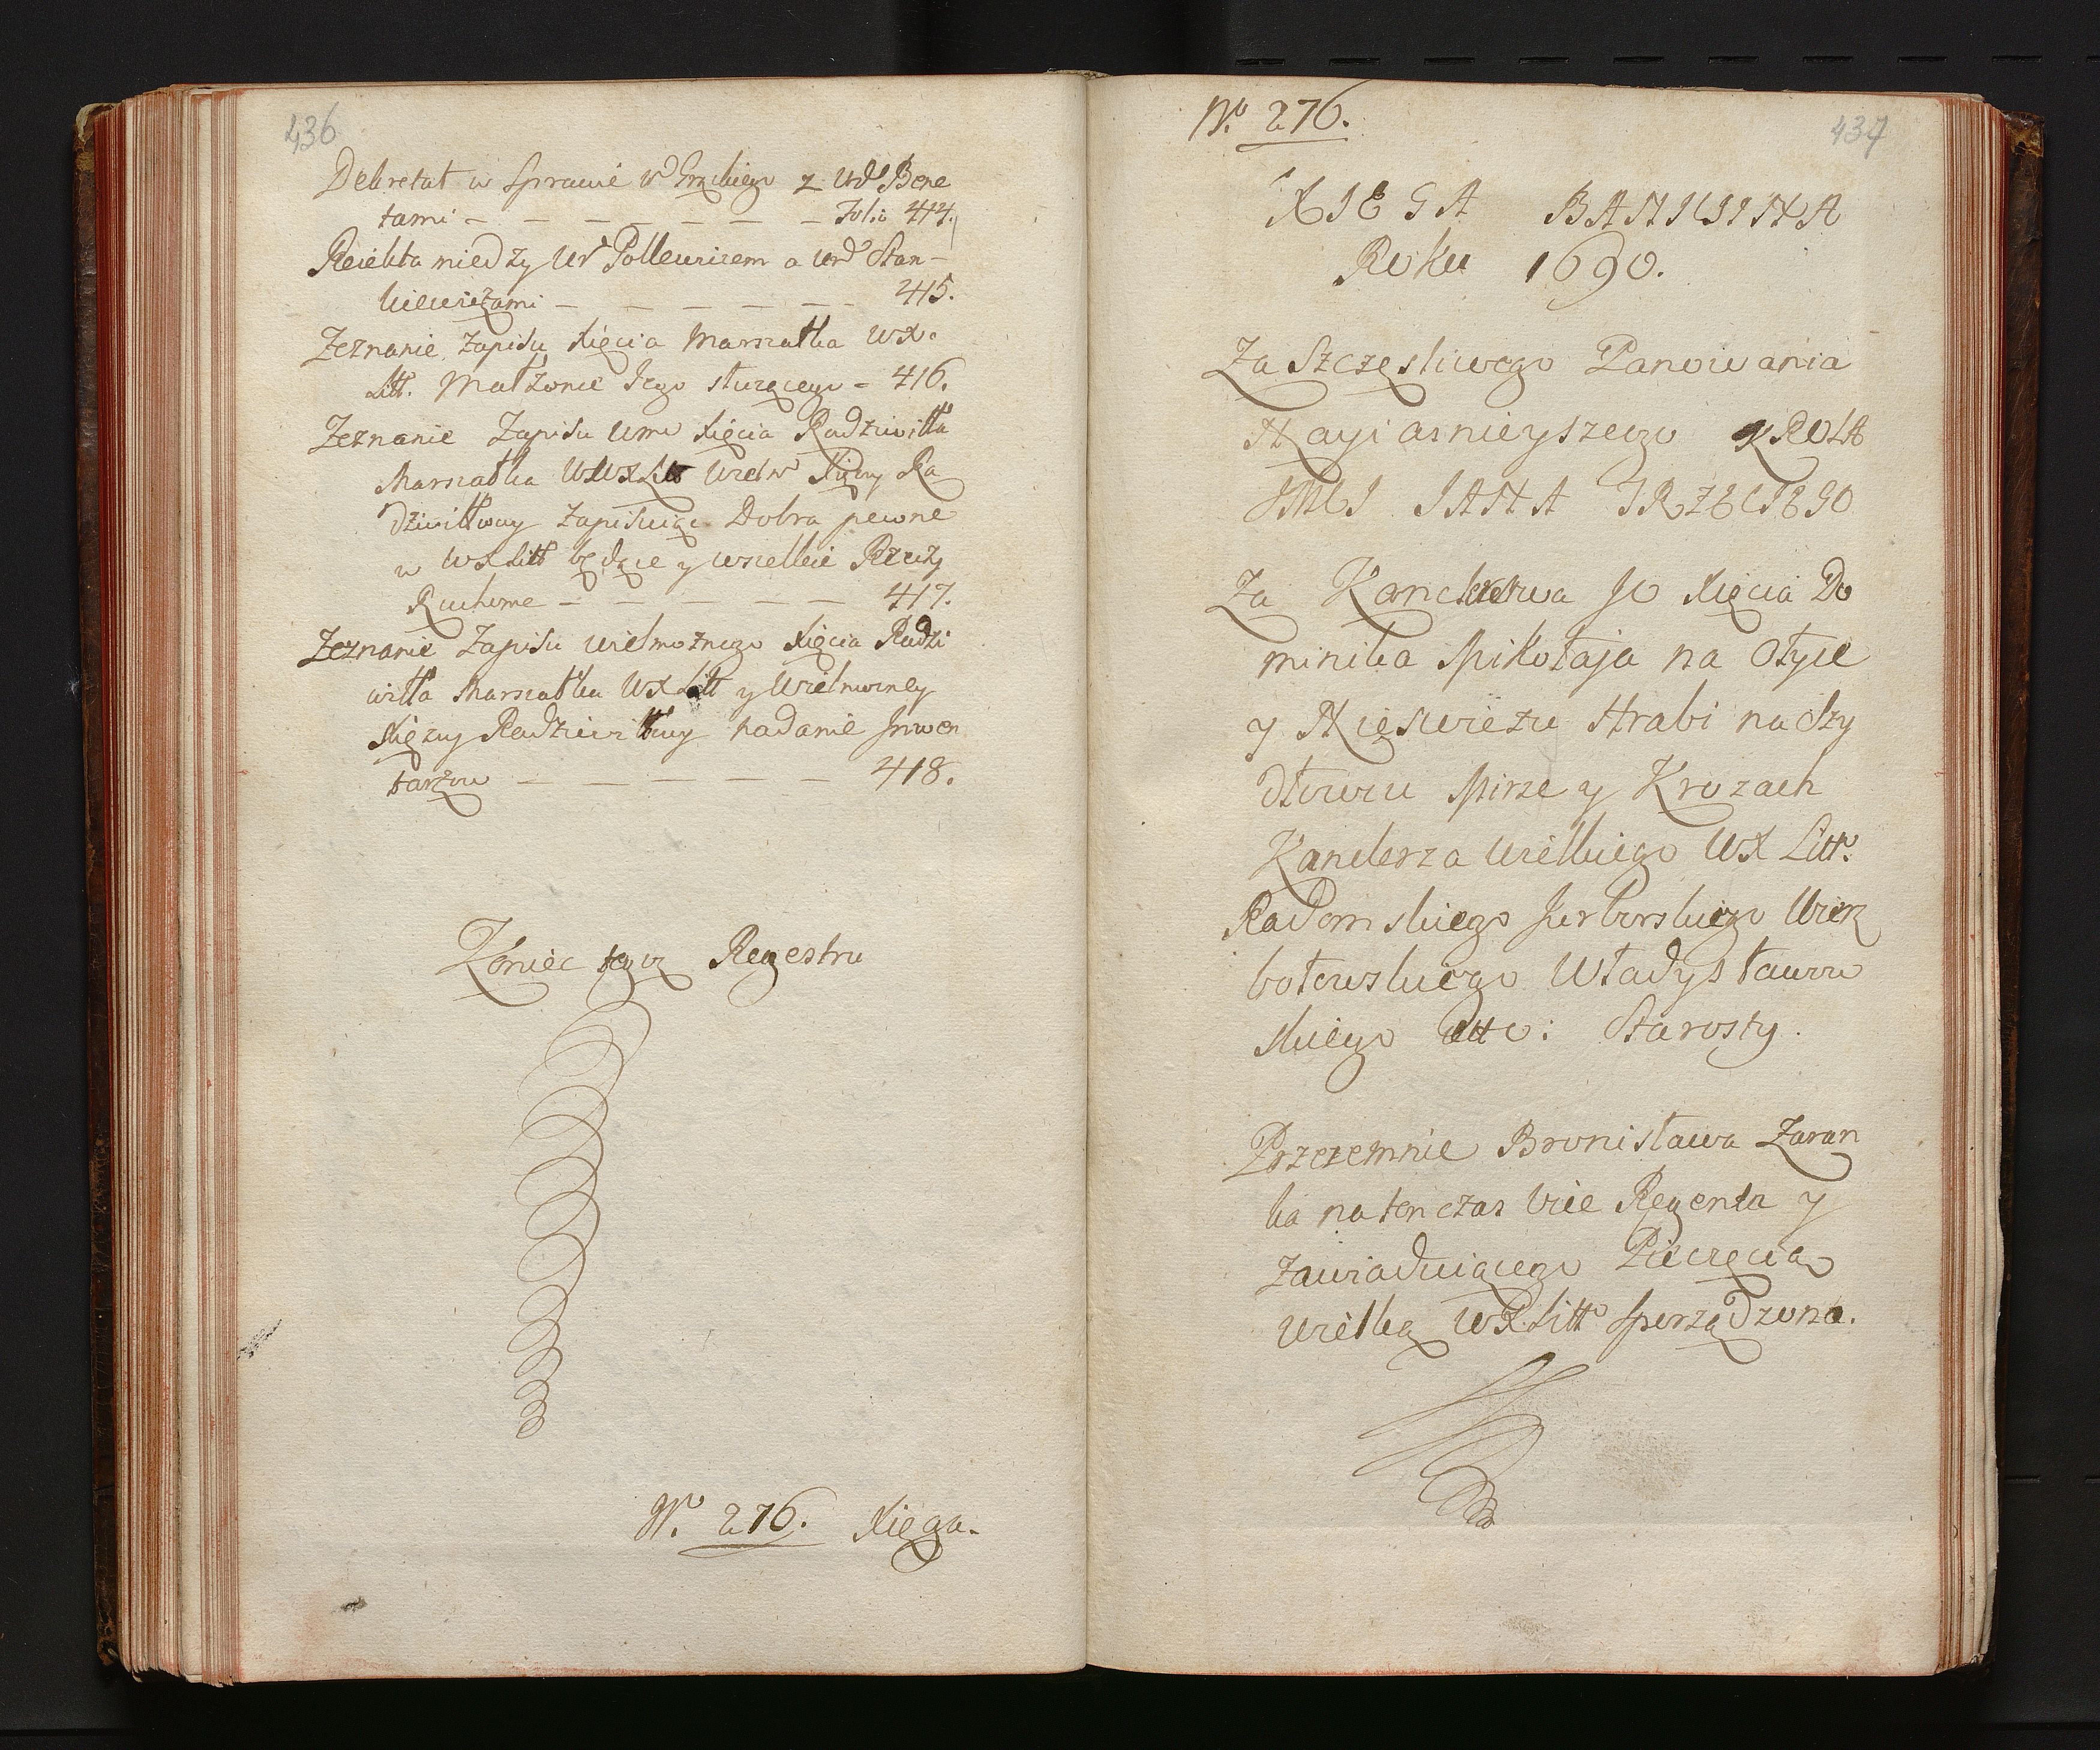 436
Dekretat w Sprawie Ur Grzkiego z Urd Bene
tami — — — — — — — Folio 414.
Reiekta między Ur Polkewiczem a Urd Stan-
kiewiczami — — — — — — 415.
Zeznanie Zapisu Xięcia Marszałka WX.
Litt. Małżonce Jego służącego - 416.
Zeznanie Zapisu Xięcia Radziwiłła
Marszałka Xiężny Ra
dziwiłłowy zapisuiąc Dobra pewne
w WX Litt będące y wszelkie Rzeczy
Ruchome — — — — — — 417.
Zeznanie Zapisu wielmożnego Xięcia Radzi
wiłła Marszałka WX Litt y Wielmożney
Xiężny Radziwiłłowy nadanie Inwen
tarzow — — — — — — 418.
Koniec tego Regestru
N. 276. Xięga.
No. 276.
437
XIEGA BANKINNA
Roku 1690.
Za Szczęsliwego Panowania
Nayiasnieyszego KROLA
JMCI JANA TRZECIEGO
Za Kanclerstwa JO Xięcia Do
minika Mikołaja na Ołyce
y Nieswieżu Hrabi na Szy
dłowcu Mirze y Krozach
Kanclerza Wielkiego WX Litt:
Radomskiego Jurborskiego Wierz
bołowskiego Władysławow
skiego ettc: Starosty.
Przezemnie Bronisława Zaran
ka na ten czas Vice Regenta y
Zawiaduiącego Pieczęcią
wielką WX Litt sporządzona.